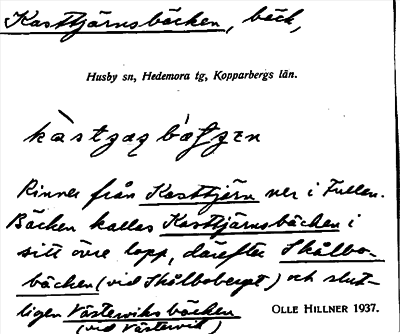 Kasttjärnsbäcken, bäck,
Husby sn, Hedemora tg, Kopparbergs län.
Rinner från Kasttjärn ner i Fullen.
Bäcken kallas Kasttjärnsbäcken i
sitt övre lopp, därefter Skålbo-
bäcken (vid Skålboberget) och slut-
ligen Västerviksbäcken
(vid Västervik)
OLLE HILLNER 1937.